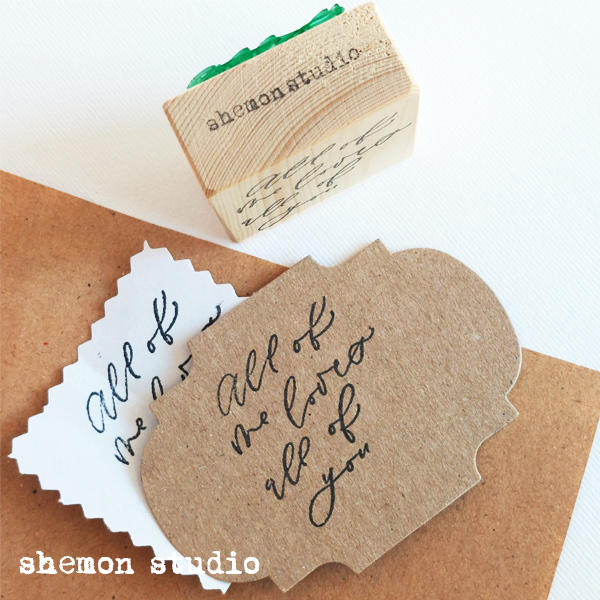 shemon studio
all of
me loves
all of
you
all of
me loves
all of
me loves
all of
you
shemon studio